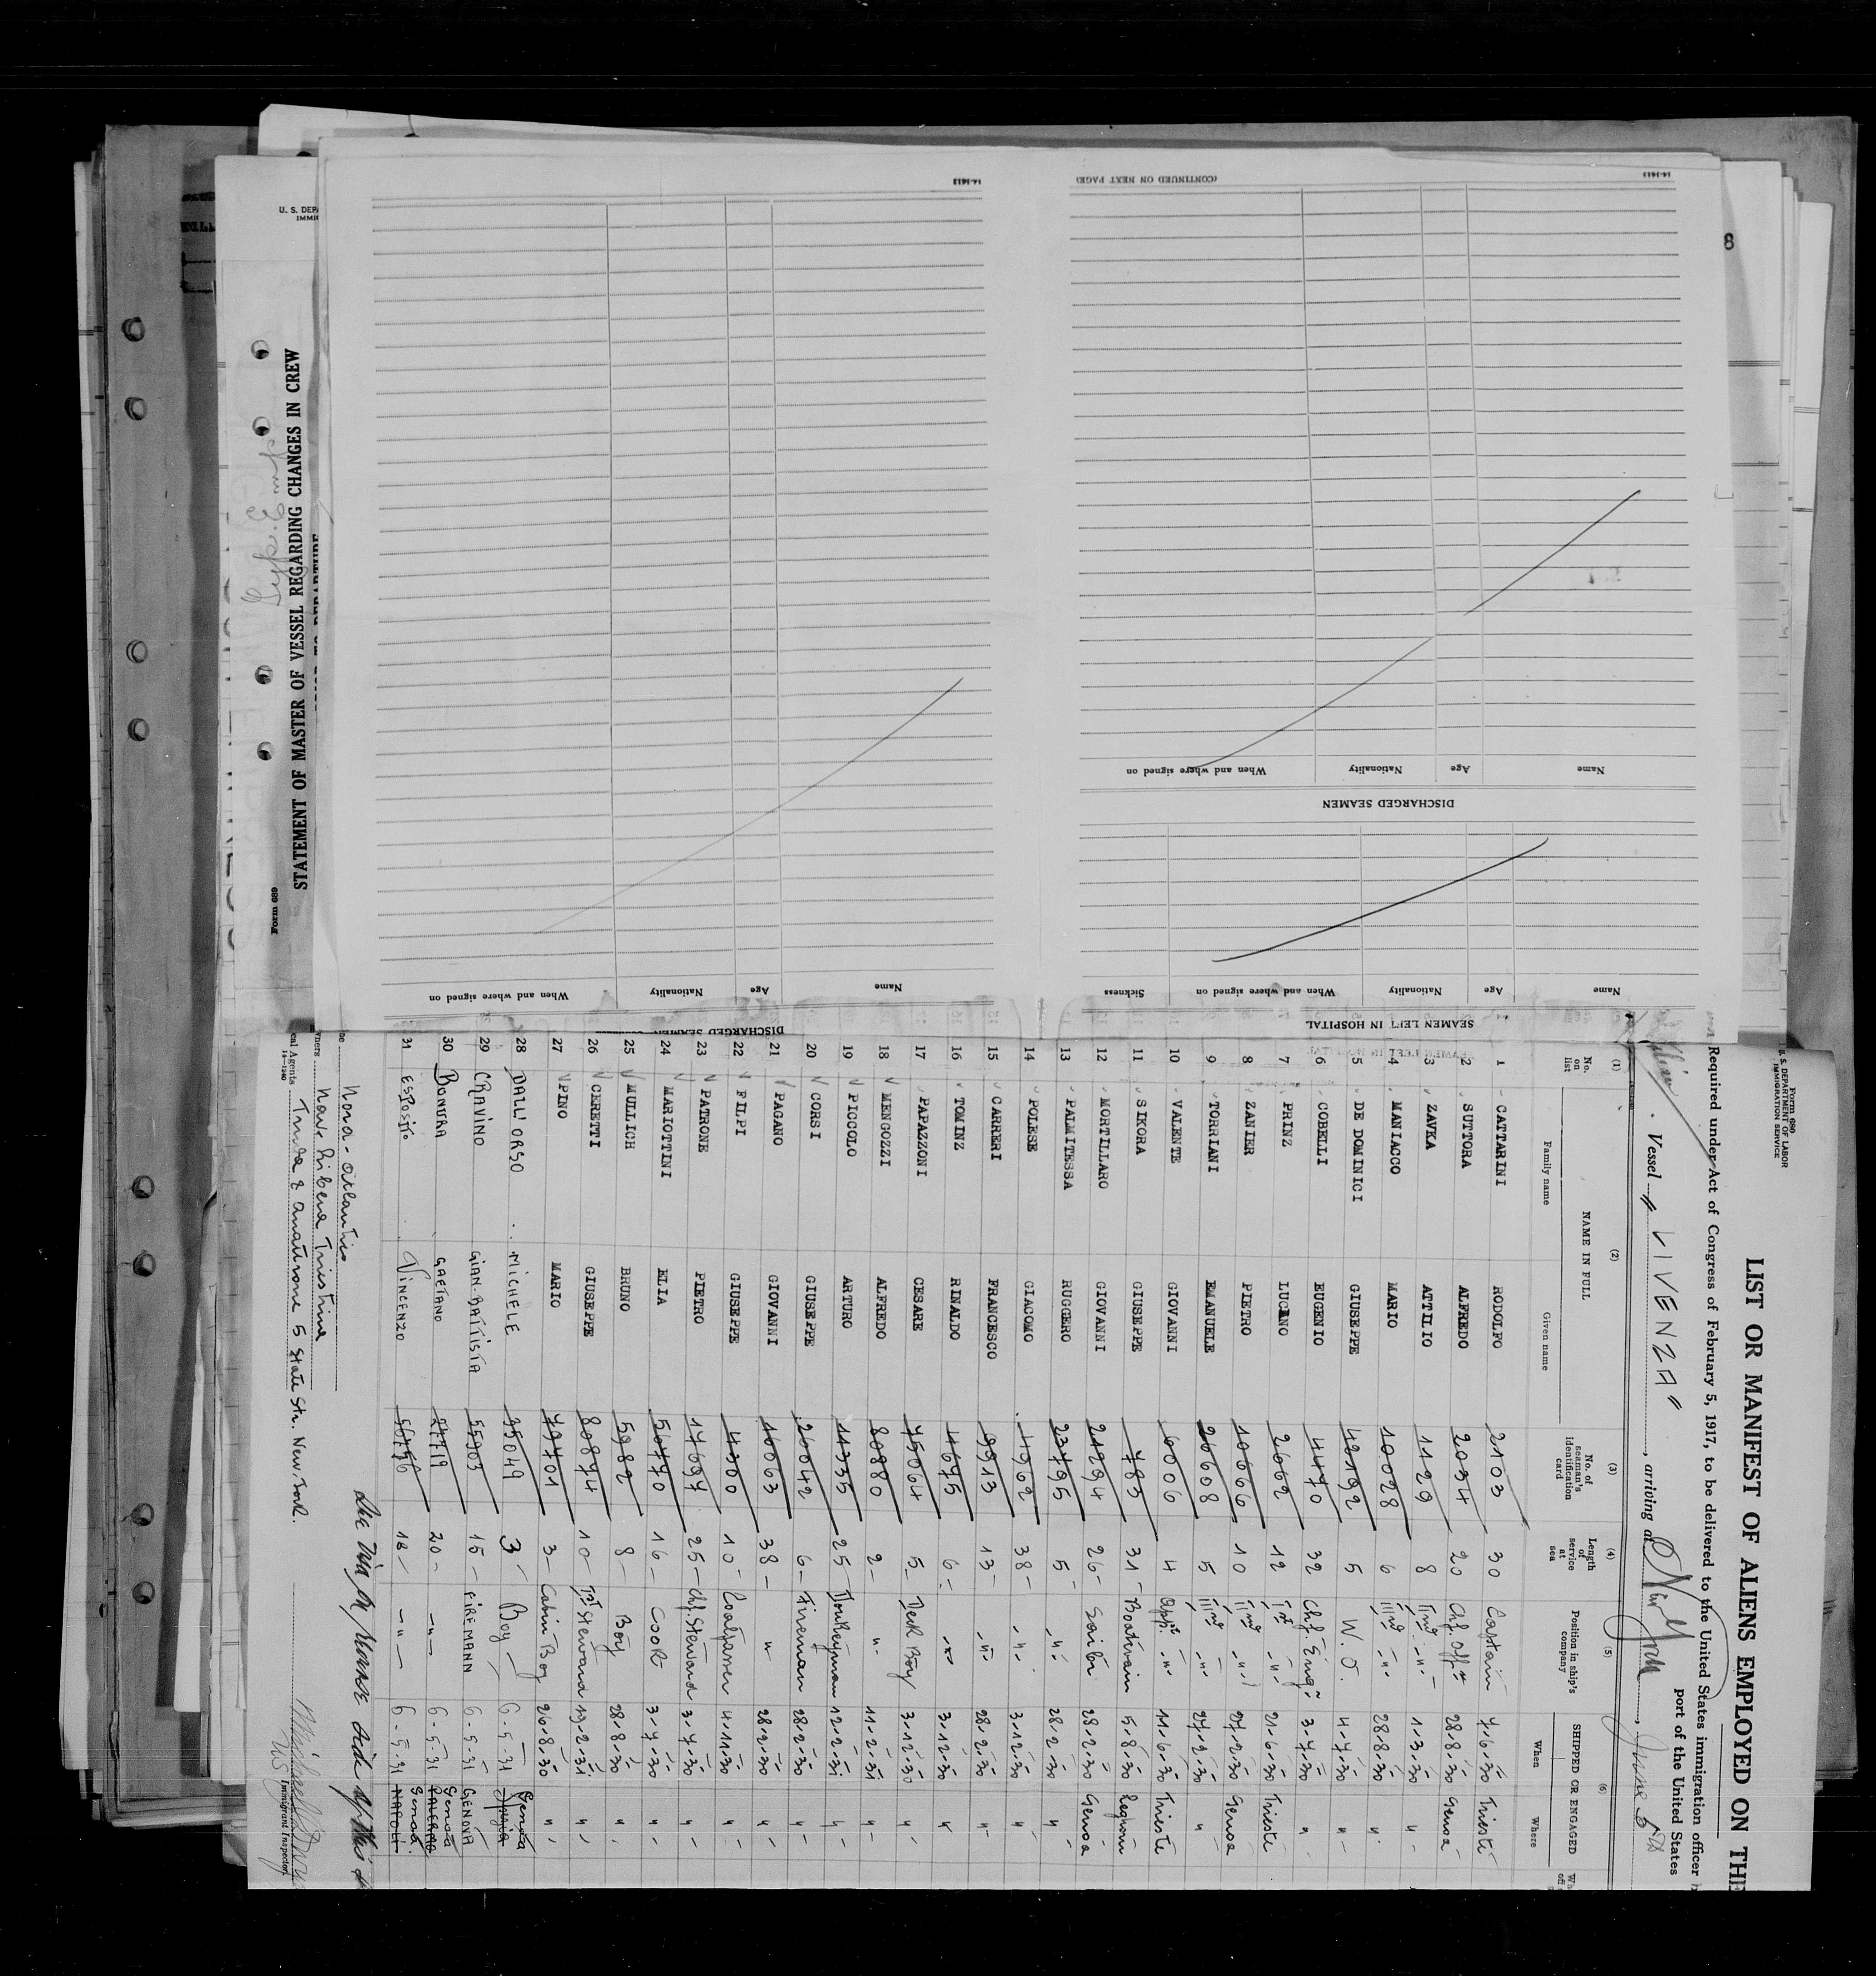 Form 689
STATEMENT OF MASTER OF VESSEL REGARDING CHANGES IN CREW
14-1613
(CONTINUED ON NEXT PAGE)
14-1613
8
SEAMEN LEFT IN HOSPITAL
Name Age Nationality When and where signed on Sickness
DISCHARGED SEAMEN
Name Age Nationality When and where signed on
DISCHARGED SEAMEN
Name Age Nationality When and where signed on
Form 680
U. S. DEPARTMENT OF LABOR
IMMIGRATION SERVICE
LIST OR MANIFEST OF ALIENS EMPLOYED ON THE
Required under Act of Congress of February 5, 1917, to be delivered to the United States immigration officer
port of the United States
Vessel " LIVENZA ", arriving at New York, June 5th
(1) (2) (3) (4) (5) (6)
No. on list NAME IN FULL No. of seaman's identification card Length of service at sea Position in ship's company SHIPPED OR ENGAGED
Family name Given name When Where
1 CATTARINI RODOLFO 2103 30 Captain 7-6-30 Trieste
2 SUTTORA ALFREDO 2034 20 Ch. Offr 28-8-30 Genoa
3 ZAVKA ATTILIO 1129 8 II nd -"- 1-3-30 "
4 MANIACCO MARIO 10028 6 III rd -"- 28-8-30 "
5 DE DOMINICI GIUSEPPE 42192 5 W. O. 4-7-30 "
6 COBELLI EUGENIO 4470 32 Chf. Engr 3-7-30 "
7 PRINZ LUCIANO 2662 12 I st -"- 21-6-30 Trieste
8 ZANIER PIETRO 10666 10 II nd -"- 27-2-30 Genoa
9 TORRIANI EMANUELE 26608 5 III rd -"- 27-2-30 "
10 VALENTE GIOVANNI 6006 4 App. -"- 11-6-30 Trieste
11 SIKORA GIUSEPPE 783 31 Boatswain 5-8-30 Leghorn
12 MORTILLARO GIOVANNI 21294 26 Sailor 28-2-30 Genoa
13 PALMITESSA RUGGERO 23795 5 -"- 28-2-30 "
14 POLESE GIACOMO 4962 38 -"- 3-12-30 "
15 CARRERI FRANCESCO 9913 13 -"- 28-2-30 "
16 TOMINZ RINALDO 4675 6 -"- 3-12-30 "
17 PAPAZZONI CESARE 75064 5 Deck Boy 3-12-30 "
18 MENGOZZI ALFREDO 80880 2 " 11-2-31 "
19 PICCOLO ARTURO 14335 25 Donkeyman 12-2-31 "
20 CORSI GIUSEPPE 26042 6 Fireman 28-2-30 "
21 PAGANO GIOVANNI 16063 38 " 28-2-30 "
22 FILPI GIUSEPPE 4300 10 Coalpasser 4-11-30 "
23 PATRONE PIETRO 17697 25 Chf. Steward 3-7-30 "
24 MARIOTTINI ELIA 56770 16 Cook 3-7-30 "
25 MULLICH BRUNO 5982 8 Boy 28-8-30 "
26 CERETTI GIUSEPPE 80874 10 I st Steward 19-2-31 "
27 PINO MARIO 79701 3 Cabin Boy 26-8-30 "
28 DALL'ORSO MICHELE 35049 3 Boy 6-5-31 Genoa
29 CRAVINO GIAN-BATTISTA 55303 15 FIREMANN 6-5-31 GENOVA
30 BONURA GAETANO 27719 20 -"- 6-5-31 PALERMO Genoa
31 ESPOSITO VINCENZO 56756 18 -"- 6-5-31 NAPOLI Genoa
Nord-Atlantic
Nav. Libera Triestina
14-1240
5 State Str. New York.
Immigrant Inspector.